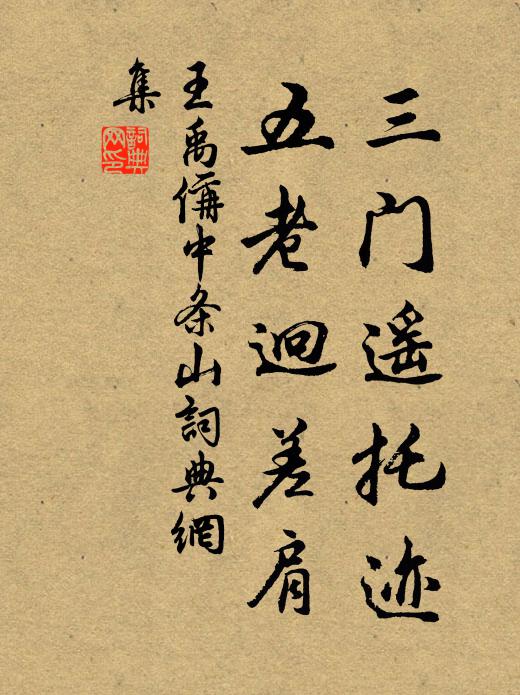 三门遥托迹
五老迥差肩
王禹偁中条山詞典網
集
詞典网印